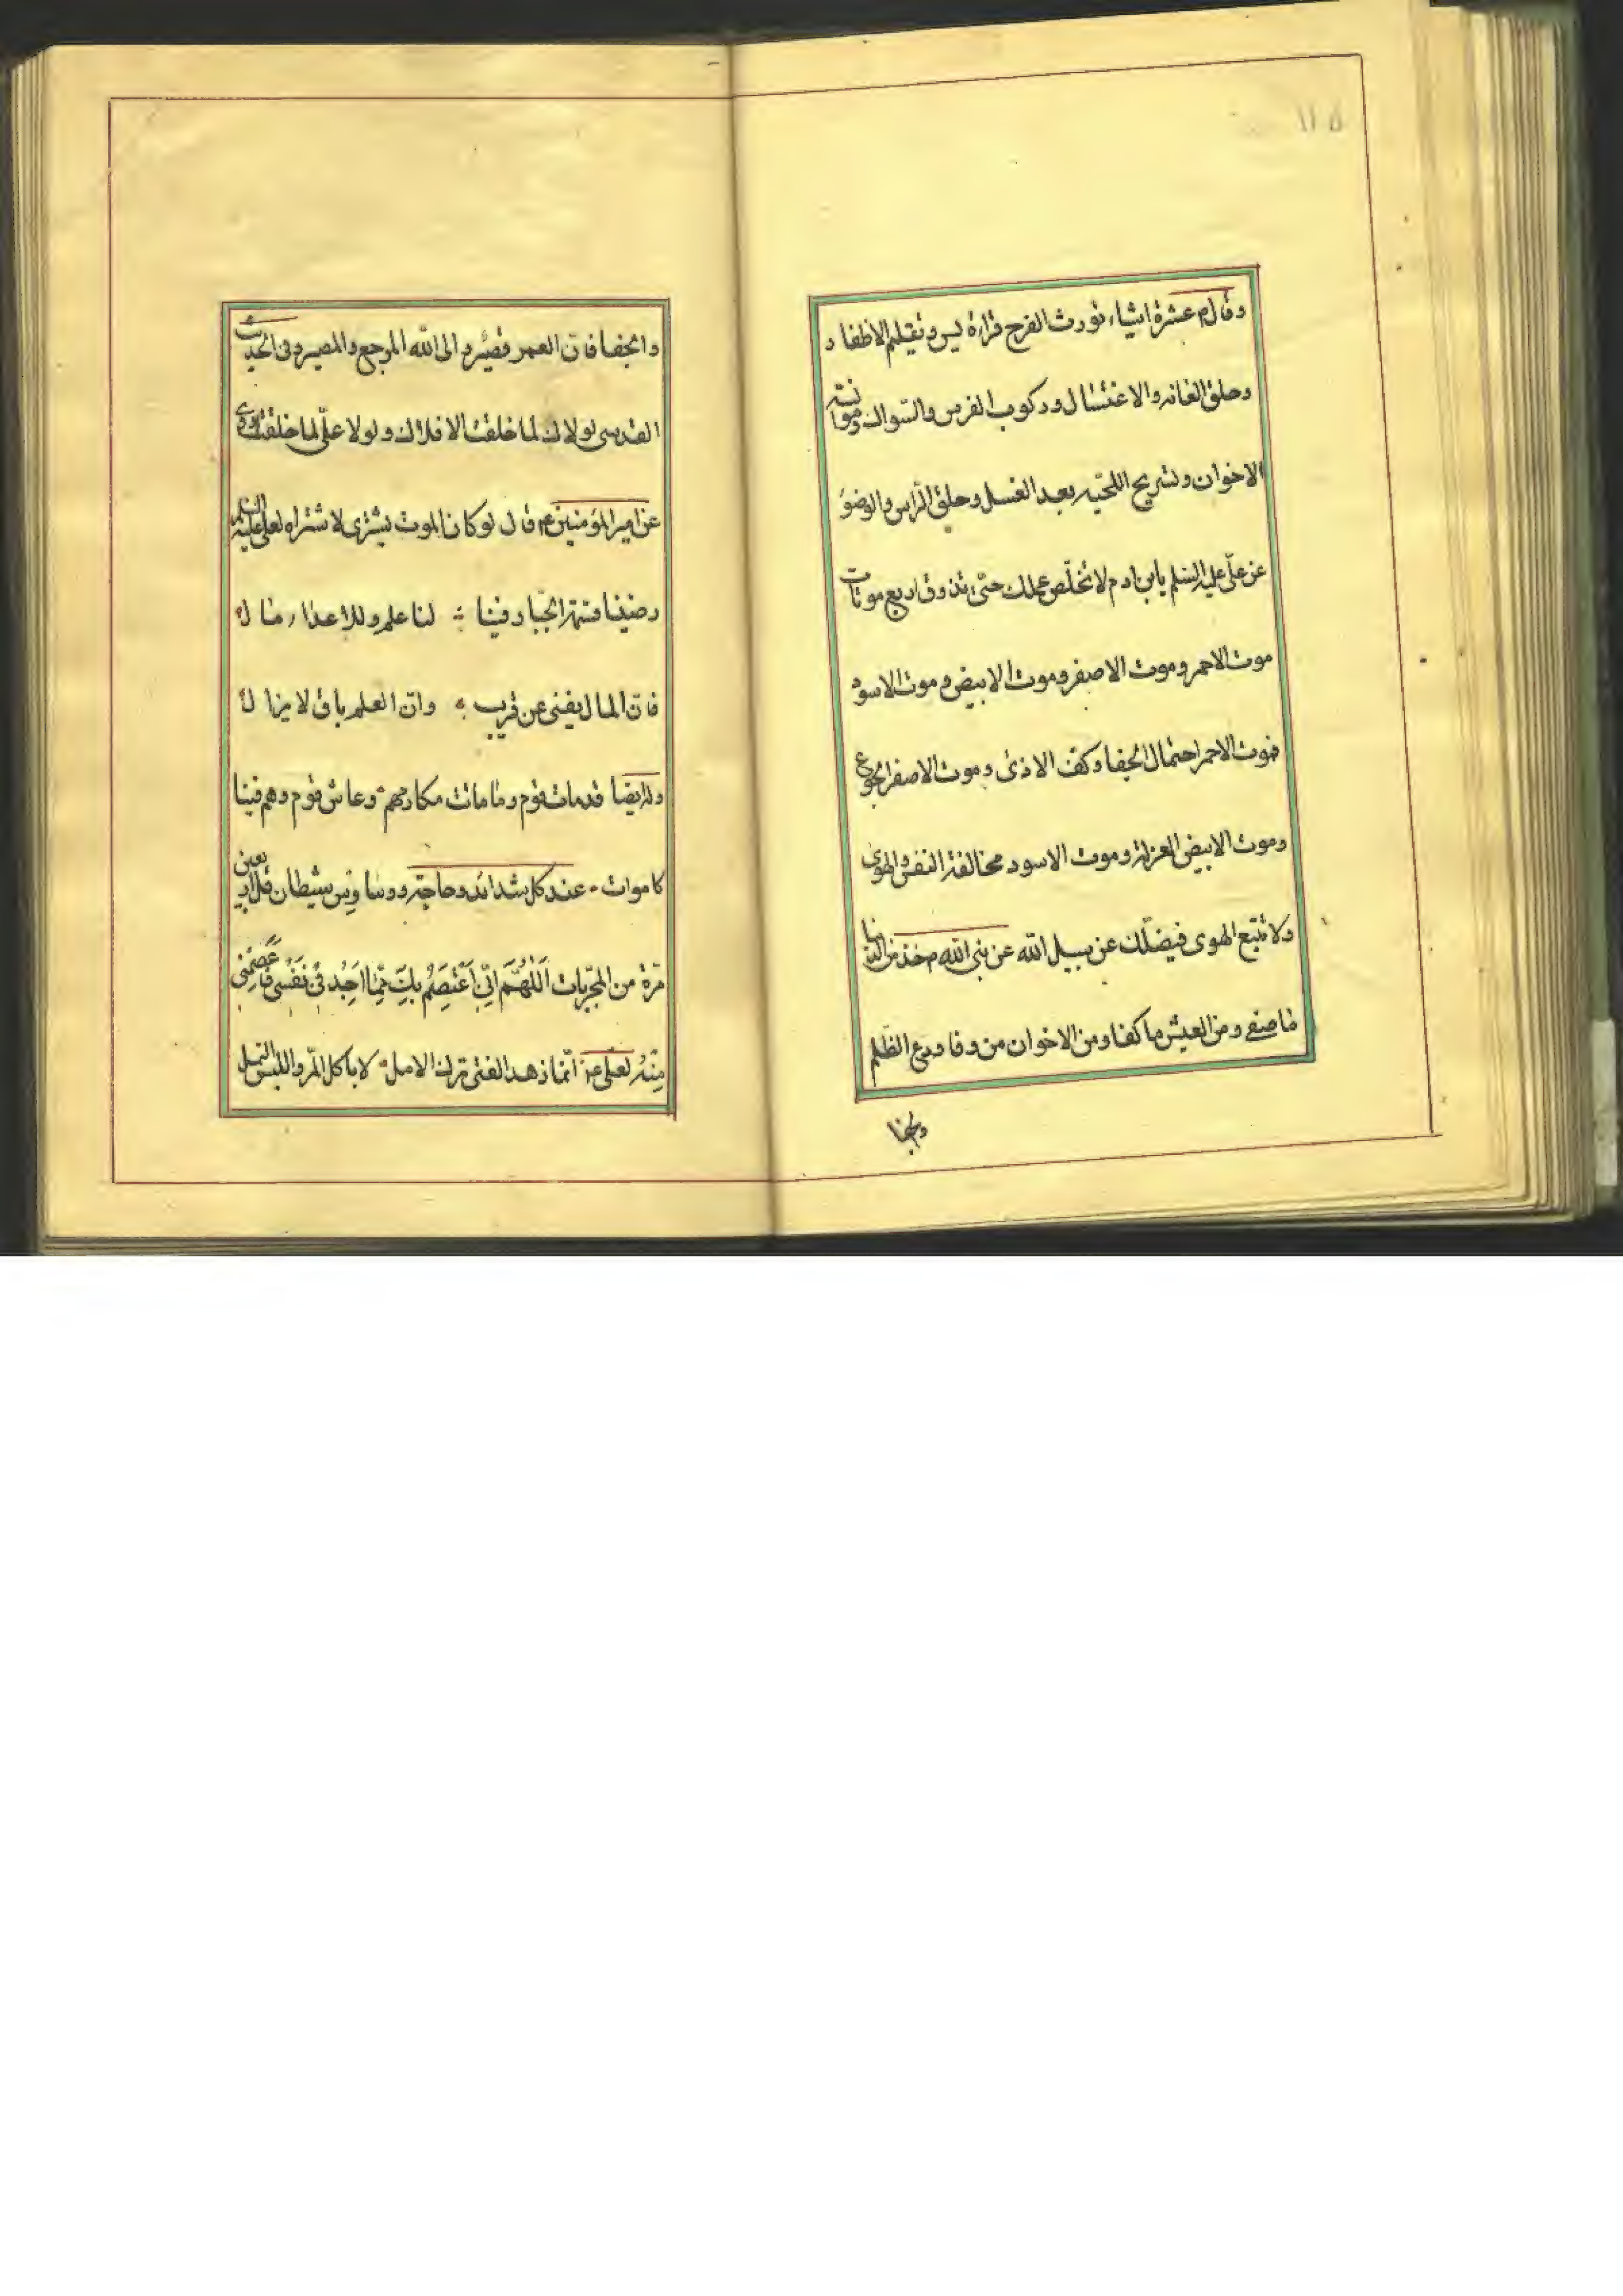 ١١٥
وقال ۴ عشرة اشياء تورث الفرح قراءة يس وتقليم الاظفار
وحلق العانه والاغتسال وركوب الفرس والسواك وموانسة
الاخوان وتسريح اللحيه بعد الغسل وحلق الراس والوضوء
عن علي عليه السلم يابن ادم لا تخلص عملك حتى تذوق اربع موتات
موت الاحمر وموت الاصفر وموت الابيض وموت الاسود
فموت الاحمر احتمال الجفا وكف الاذى وموت الاصفر الجوع
وموت الابيض العزلة وموت الاسود مخالفة النفس والهوى
ولا تتبع الهوى فيضلك عن سبيل الله عن نبي الله ۴ خذ من الدنيا
ما صفي ومن العيش ما كفا ومن الاخوان من وفا ودع الظلم
والجفا
والجفا فان العمر قصير والى الله المرجع والمصير وفى الحديث
القدسي لولاك لما خلقت الافلاك ولولا علي لما خلقتك روي
عن امير المؤمنين ۴ قال لو كان الموت يشترى لاشتراه لعلي عليه السلم
رضينا قسمة الجبار فينا لنا علم وللاعداء مال
فان المال يفنى عن قريب وان العلم باق لا يزال
وله ايضا قد مات قوم وما مات مكارمهم وعاش قوم وهم فينا
كاموات عند كل شدائد وحاجة ووساوس شيطان قل اربعين
مرة من المجربات اَللّهُمَّ اِنّي اَعْتَصِمُ بِكَ مِمّا اَجِدُ فى نَفْسى فَاعْصِمْنى
مِنْهُ لعلي ع انما زهد الفتى ترك الامل لا باكل المر واللبس السمل